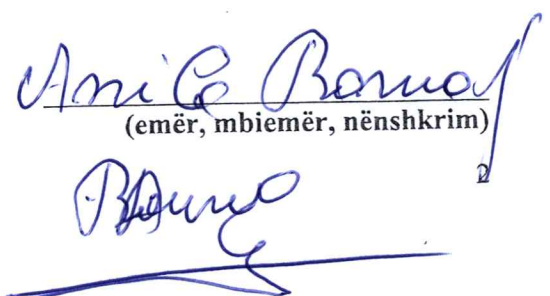 Anila Barna
(emër, mbiemër, nënshkrim)
2